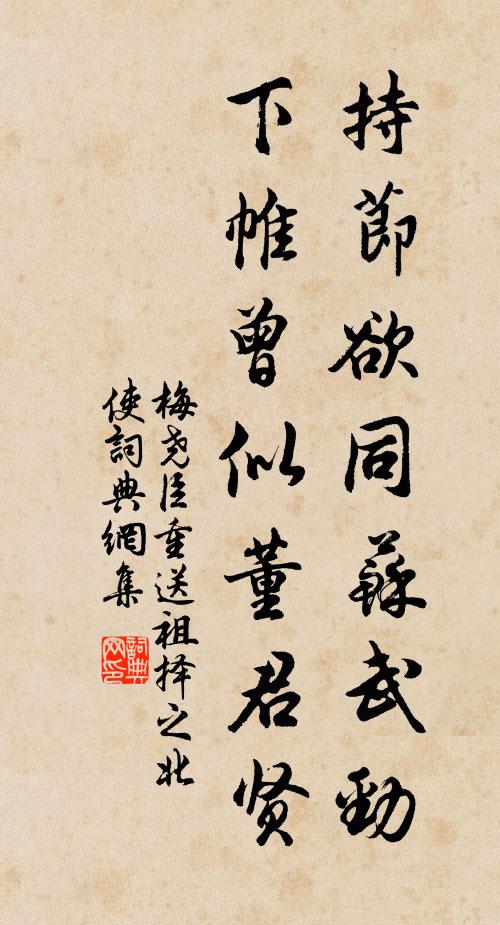 持節欲同蘇武勁
下帷曾似董君贤
梅尧臣重送祖择之北
使詞典網集
詞典
网印